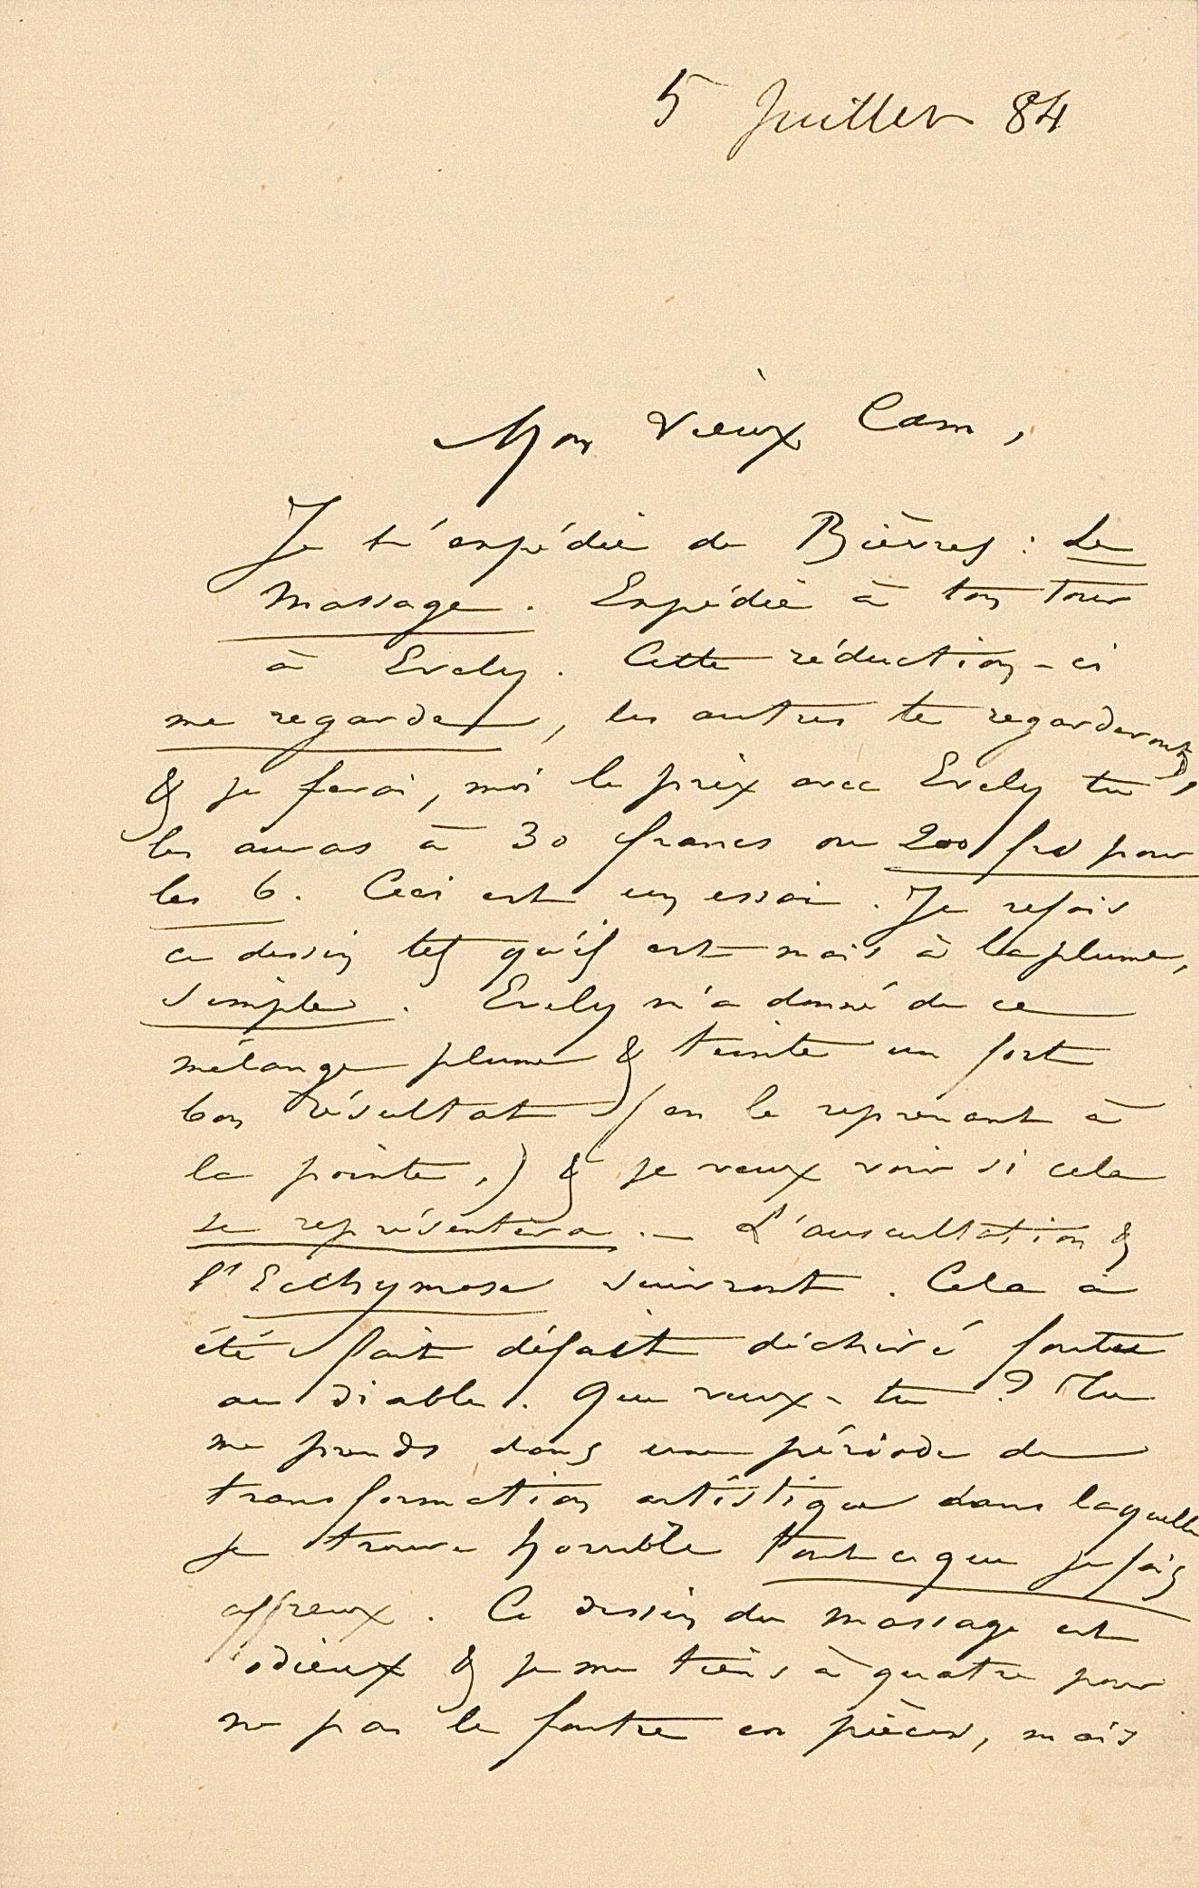 5 Juillet 84
Mon vieux Cam,
Je t'expédie de Bièvres : Le
Massage. Expédie à ton tour
à Evely. Cette réduction-ci
me regarde, les autres te regarderont,
& je ferai, moi le prix avec Evely tu
les auras à 30 francs ou 200 frs pour
les 6. Ceci est un essai. Je refais
ce dessin tel qu'il est mais à la plume,
simple. Evely m'a donné de ce
mélange plume & teinte un fort
bon résultat (en le reprenant à
la pointe,) & je veux voir si cela
se représentera. — L'auscultation &
l'Ecchymose suivront. Cela a
été fait défait déchiré foutu
au diable. Que veux-tu ? Tu
me prends dans une période de
transformation artistique dans laquelle
je trouve horrible tout ce que je fais
affreux. Ce dessin du massage est
odieux & je me tiens à quatre pour
ne pas le foutre en pièces, mais